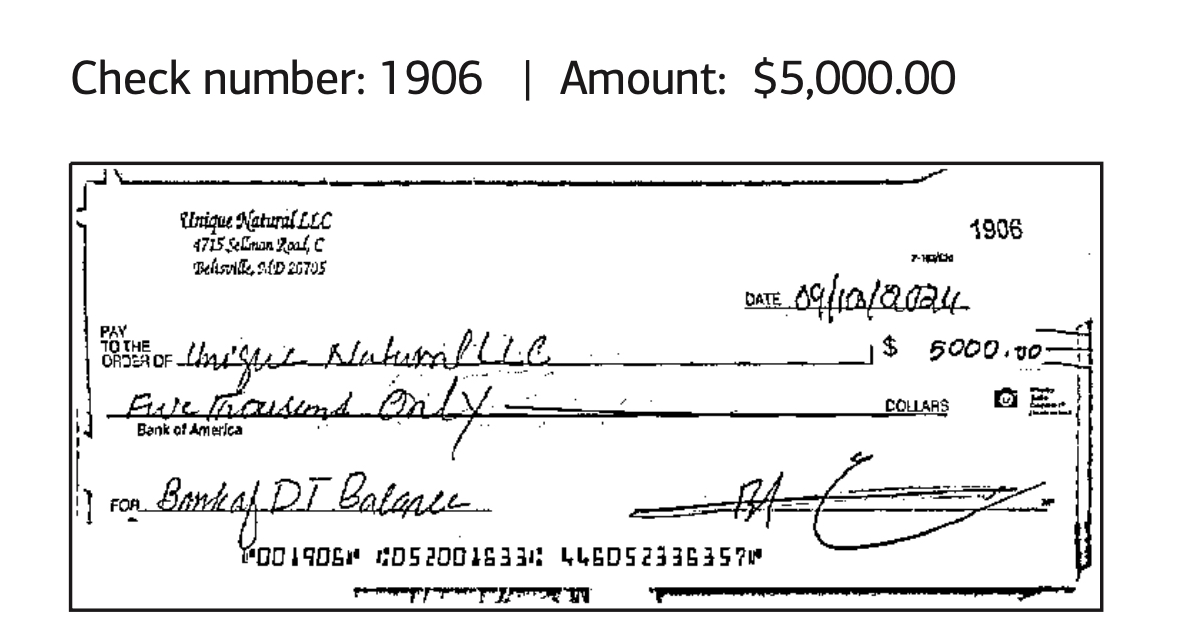 Check number: 1906 | Amount: $5,000.00
Unique Natural LLC
4715 Sellman Road, C
Beltsville, MD 20705
1906
DATE 09/10/2024
PAY
TO THE
ORDER OF Unique Natural LLC $ 5000.00
Five Thousand Only DOLLARS
Bank of America
FOR Bank of DI Balance
⑈001906⑈ ⑆052001633⑆ 446052336357⑈